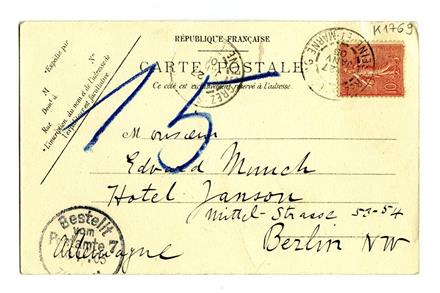 K1769
RÉPUBLIQUE FRANÇAISE
CARTE POSTALE
Ce côté est exclusivement réservé à l'adresse.
Expédié par
M
Demt à
Rue
No
L'inscription du nom et de l'adresse de
l'expéditeur est facultative.
15
10
Monsieur
Edvard Munch
Hotel Janson
Mittel-Strasse 53-54
Berlin NW
Allemagne
Bestellt
vom
Postamte 7